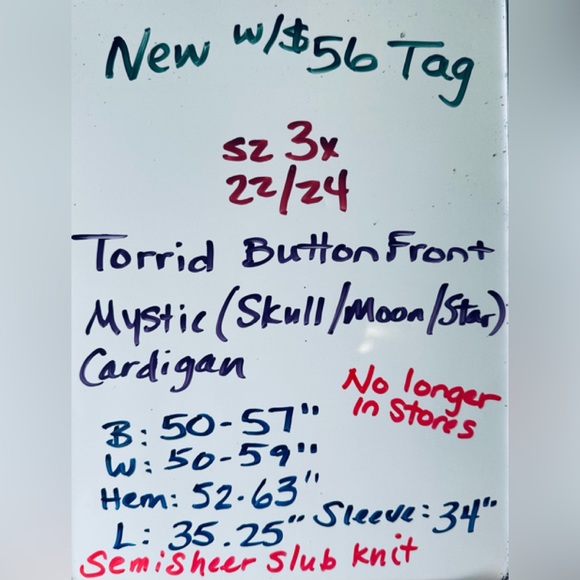 New w/$56 Tag
sz 3x
22/24
Torrid Button Front
Mystic (Skull/Moon/Star)
Cardigan
No longer
In Stores
B: 50-57"
W: 50-59"
Hem: 52-63"
L: 35.25" Sleeve: 34"
Semisheer slub knit